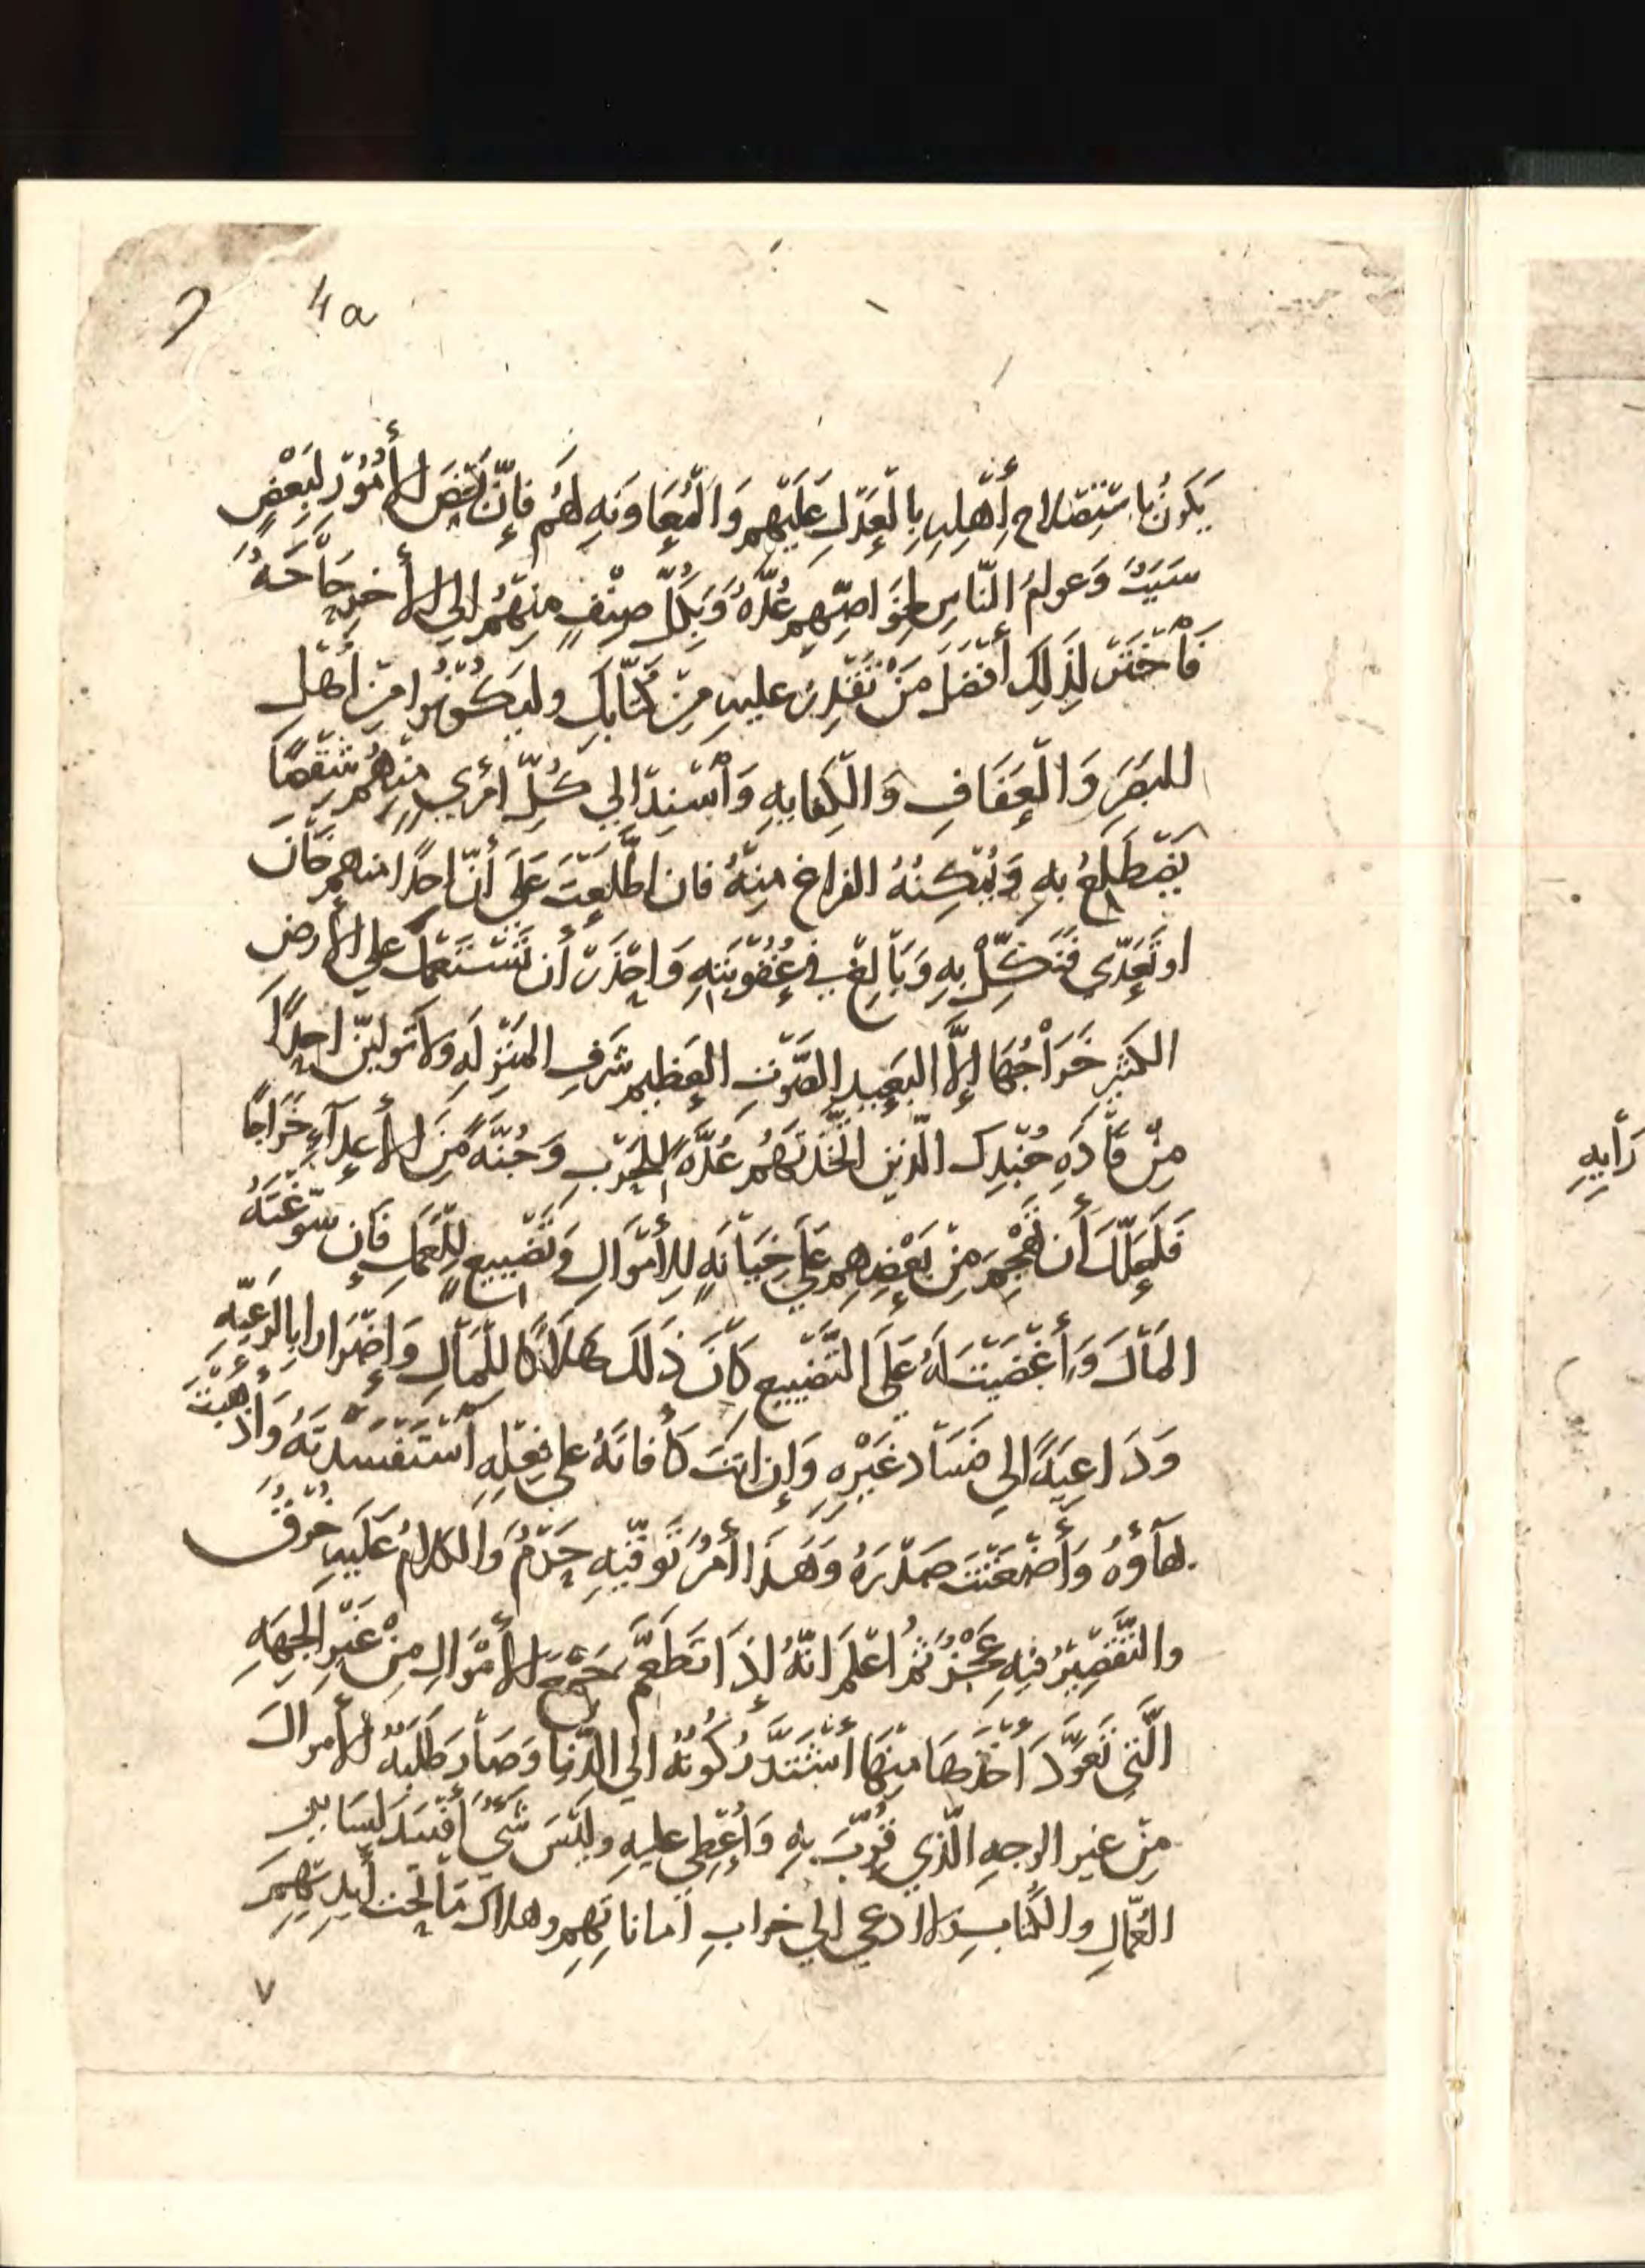 4a
يَكونُ باسْتِصْلاح أَهْلِهِ بِالْعَدْلِ عَلَيْهِم وَالْمُعَاوَنَهِ لَهُم فَإِنَّ بَعْضَ الأُمُوْرِ لِبَعْضٍ
سَبَبٌ وَعوامُ النّاسِ لِخَوَاصِّهِم عُدَّهٌ وَبِكُلِّ صِنْفٍ مِنْهُمْ إلى الأخرِ حَاْجَهٌ
فَاْخْتَرْ لِذَلِكَ أَفْضَلَ مَنْ تَقْدِرُ عليهِ مِنْ كُتّابِكَ وليَكُوْنُوا مِنْ أَهْلِ
البَصَرِ وَالْعَفَافِ وَالْكِفايهِ وَاْسْنِدْ إلي كُلِّ امْرِيٍ مِنْهُمْ شِقْصًا
يَضْطَلِعُ بهِ وَيُمْكِنُهُ الفراغ مِنْهُ فان اطَّلَعْتَ عَلَى أَنَّ احدًا منهم خَاْنَ
او تَعَدّي فَنَكِّلْ بِهِ وَبَاْلِغْ في عُقُوْبَتِهِ وَاحْذَرْ أَن تَسْتَعْمِلَ علي الأرضِ
الكثيرِ خَرَاْجُهَا إلَّا البَعِيدِ الصَّوْتِ العَظِيمِ شَرَفِ المَنْزِلَهِ ولا تُولينّ احدًا
مِنْ قَاْدَهِ جُنْدِكَ الّذين اتَّخَذْتَهُم عُدَّهً لِلحَرْبِ وَجُنَّهً مِنَ الأَعدآءِ خَرَاجًا
فَلَعَلَّكَ أَن تَهْجُمَ مِنْ بَعْضِهِم عَلَي خِيَاْنَهٍ لِلأَمْوَالِ وَتَضْيِيعٍ لِلْعَمَلِ فَإن سَوَّغْتَهُ
المَاْلَ وَأَغْضَيْتَ لَهُ عَلَى التَّضْيِيعِ كَاْنَ ذَلَكَ هَلَاْكًا لِلْمَاْلِ وَإِضْرَارا بِالرَعِيَّهِ
وَدَاعِيَهً إلي فَسَاْد غَيْرِهِ وَإن انتَ كَافاتَهُ علي فِعْلِهِ اسْتَفْسَدْتَهُ وَأَذْهَبْتَ
بهآؤهُ وَأَضْغَنْتَ صَدْرَهُ وَهَذَا أَمْرُ تَوَقّيْهِ حَزْمُ وَالكلامُ عَلَيهِ خُوْقُ
والتَّقْصِيْرُ فيهِ عَجْزُ ثمُ اعْلَم انّهُ إذَا تَطَعَّمَ جَمْعَ الأَمْوَالِ مِنْ غَيْرِ الجِهَهِ
الَّتي تَعَوَّدَ أَخْذَهَا مِنْهَا أشْتَدَّ رُكُوْنُهُ الي الدّنيا وَصَاْرَ طَلَبُهُ الأَموالَ
مِنْ غير الوجهِ الّذي قُوِّتَ بهِ وَأُعْطِى عليهِ وليْسَ شَيٌ أَفْسَدَ لِسَايِرِ
العُمّالِ والكُتّابِ ولا ادعي الي خرابِ أماناتِهِم وهلاك مَاْ تحْتَ أيدِيْهِمْ
٧
رَأْيِهِ